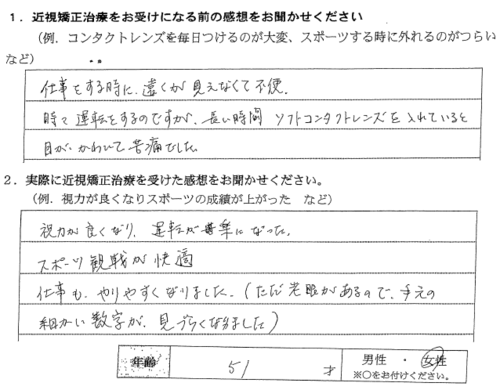 1．近視矯正治療をお受けになる前の感想をお聞かせください
（例．コンタクトレンズを毎日つけるのが大変、スポーツする時に外れるのがつらい
など）
仕事をする時に、遠くが見えなくて不便．
時々運転をするのですが、長い時間 ソフトコンタクトレンズを入れていると
目が、かわいて苦痛でした。
2．実際に近視矯正治療を受けた感想をお聞かせください。
（例．視力が良くなりスポーツの成績が上がった　など）
視力が良くなり、運転が楽になった。
スポーツ観戦が快適
仕事も、やりやすくなりました。（ただ老眼があるので、手元の
細かい数字が、見づらくなりました）
年齢　51　才　男性　・　女性
※○をお付けください。